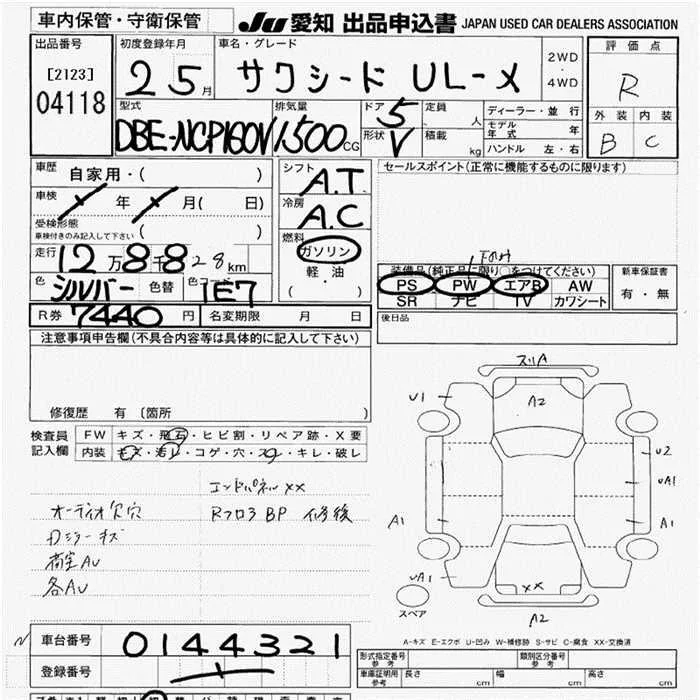 車内保管・守衛保管
JU 愛知 出品申込書 JAPAN USED CAR DEALERS ASSOCIATION
出品番号 初度登録年月 車名・グレード 2WD・4WD 評価点
[2123] 25月 サクシード UL-X R
04118
型式 排気量 ドア 5 定員 人 ディーラー・並行 外装 内装
DBE-NCP160V 1500CC 形状 V 積載 kg モデル年式 年 B C
ハンドル 左・右
車歴 自家用・( ) シフト A.T. セールスポイント(正常に機能するものに限ります)
車検 年 月( 日) 冷房 A.C
受検形態
車検付きのみ記入して下さい ( ) 燃料
走行 12万8千828km ガソリン
軽・油
( ・ )
色 シルバー 色替 色コード 1E7
装備品(純正品に限り○をつけてください) 新車保証書
PS PW エアB AW 有・無
SR ナビ TV カワシート
R券 7440円 名変期限 月 日
後日品
注意事項申告欄(不具合内容等は具体的に記入して下さい)
修復歴 有 〔箇所 〕
検査員 FW キズ・飛石・ヒビ割・リペア跡・X要
記入欄 内装 キズ・汚レ・コゲ・穴・スレ・キレ・破レ
エンドパネルXX
オーディオ欠穴 Rフロア BP 修後
Dミラーキズ
荷室AU
各AU
スリA
U1
A2
U2
UA1
A1
A1
UA1
XX
スペア
A2
A-キズ E-エクボ U-凹み W-補修跡 S-サビ C-腐食 XX-交換済
車台番号 0144321
登録番号
形式指定番号 参考 類別区分番号 参考
車庫証明用 参考 長さ cm 幅 cm 高さ cm